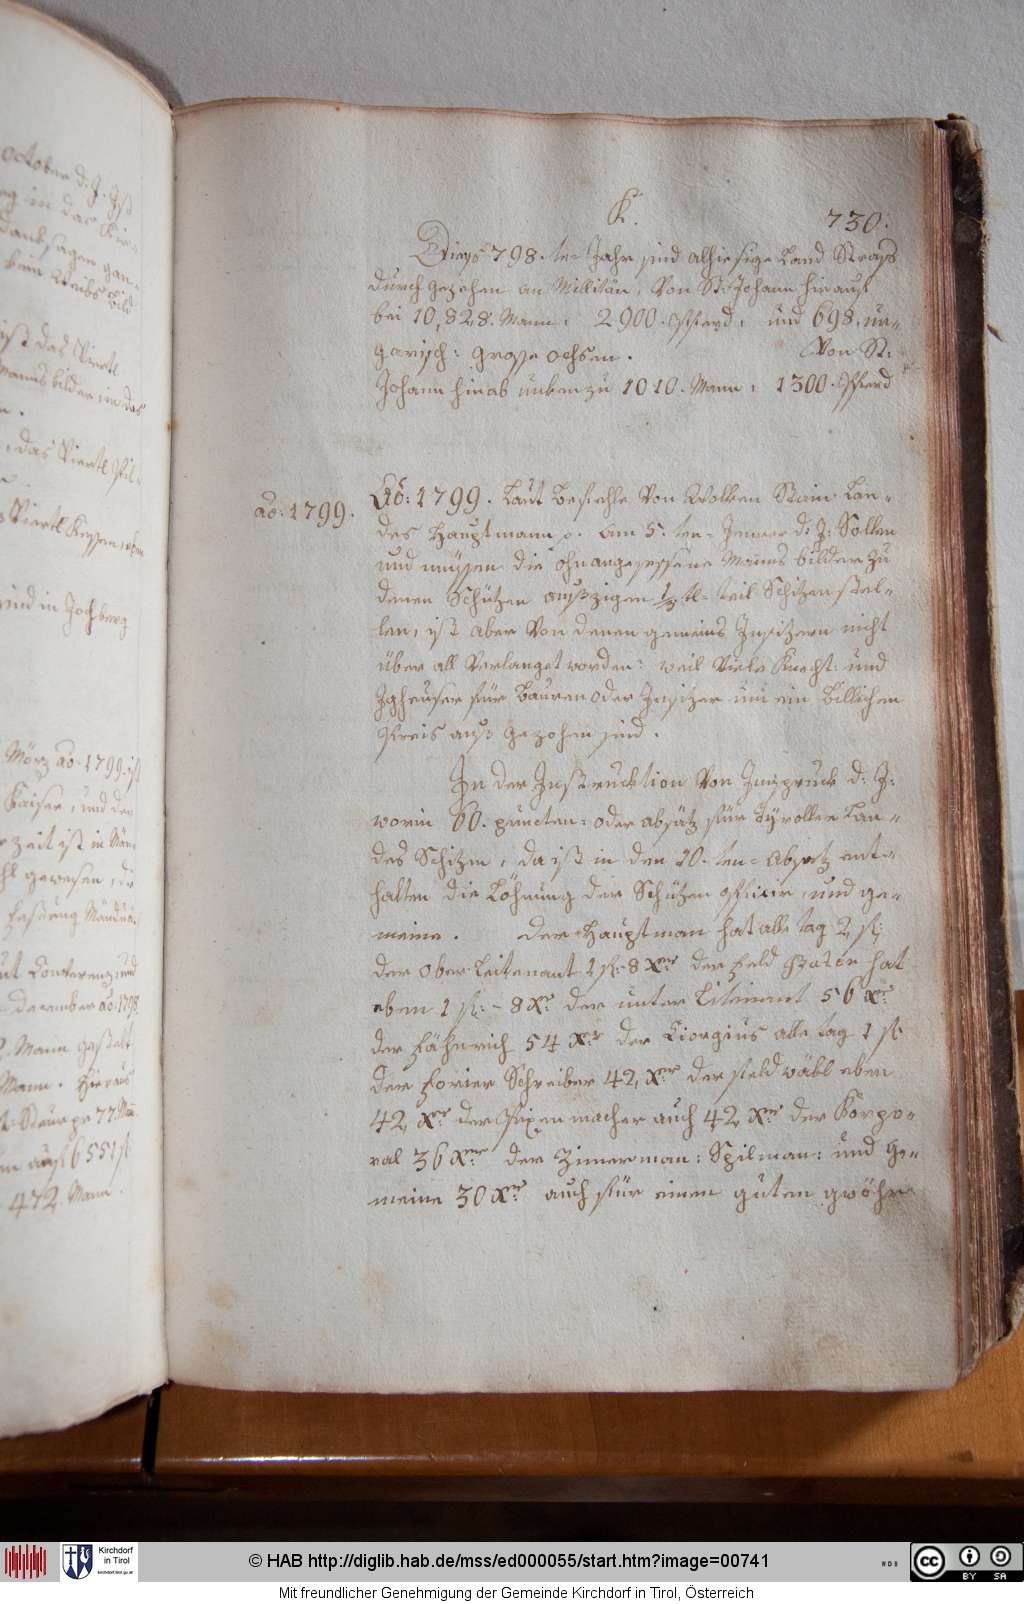 october d. J. Jst
in der Kir-
danksagen gan-
kein Weibs bild
ist das Viertl
Mannsbilder in das
das Viertl Pil-
Viertl Kessen
sind in Jochberg
Mörz ao. 1799. ist
Kaiser, und der
zeit ist in
gewesen
Conferenz, und
december ao: 1798
Mann gestelt
Mann. Hieraus
Steur pr 77.
auf 6551 fl.
472 Mann.
K.
730.
Dises 798.te Jahr sind alhiesige Land Strass
durch gezohen an Millitär, Von St: Johann hinauf
bei 10,828. Mann: 2900. Pfferd, und 698. un-
garisch: grosse ochsen. Von St:
Johann hinab unben zu 1010. Mann, 1300. Pfferd
ao: 1799.
Aõ: 1799. Laut Befehle Von Wolken Stain Lan-
des Hauptmann p. am 5.ten Jenner d: J: Sollen
und müssen die ohnangesessene Manns bilder zu
denen Schützen auszigen teil Schitzen stel-
len, ist aber Von denen gemeins Jnsitzern nicht
über all Verlanget worden: weil Viele Knecht: und
Jnheuser für Bauren oder Jnsitzer um ein billichen
Preis auß gezohen sind.
Jn der Jnstrucktion Von Jnnspruck d: J:
worin 60. puncten: oder absätz für Tyroller Lan-
des Schitzen, da ist in den 20.ten Absatz ent-
halten die Löhnung der Schützen officiir, und ge-
meine. der Hauptman hat alle tag 2 fl:
der ober Leitenant 1 fl:-8 Xer der feld Pater hat
eben 1 fl:-8 Xer der unter Litinant 56 Xer
der Fähnrich 54 Xer der Ciorgius alle tag 1 fl.
der forier Schreiber 42, Xer der feldwäbl eben
42, Xer der Pixenmacher auch 42 Xer der Korpo-
ral 36 Xer der Zimerman: Spilman: und Ge-
meine 30 Xer auch für einen guten gwöhr
Kirchdorf
in Tirol
kirchdorf.tirol.gv.at
© HAB http://diglib.hab.de/mss/ed000055/start.htm?image=00741
WDB
cc
BY SA
Mit freundlicher Genehmigung der Gemeinde Kirchdorf in Tirol, Österreich